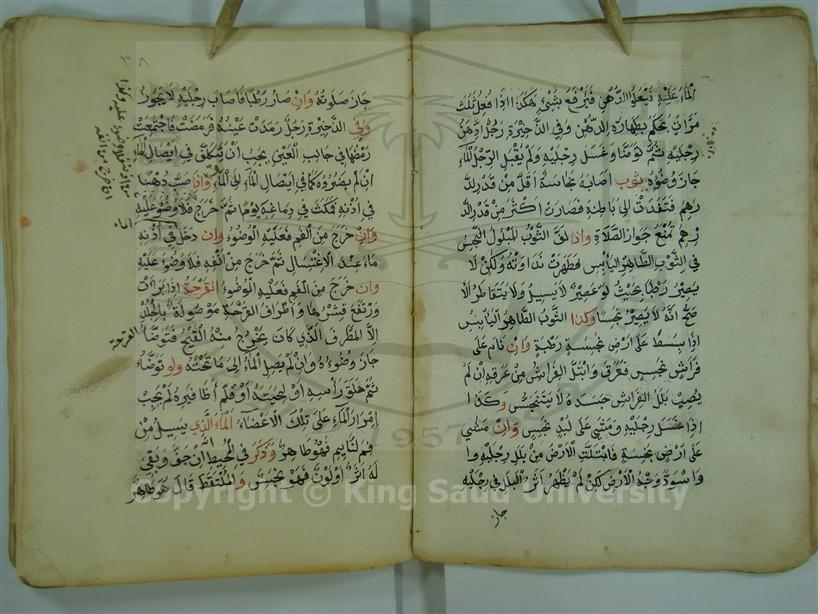 الماء عليه فيعلوا الدهن فيرفع بشئ هكذا اذا فعل ثلث
مرات يحكم بطهارة الدهن وفي الذخيرة رجل ادهن
رجليه ثم توضا وغسل رجليه ولم يقبل الرجل الماء
جاز وضوءه ثوب اصابه نجاسة اقل من قدر الد
رهم فنفذت الى باطنه فصارت اكثر من قدر الد
رهم يمنع جواز الصلاة واذا لف الثوب المبلول النجس
في الثوب الطاهر اليابس فظهرت نداوته ولكن لا
يصير رطبا بحيث لو عصر لا يسيل ولا يتقاطر الا
صح انه لا يصير نجسا وكذا الثوب الطاهر اليابس
اذا بسط على ارض نجسة رطبة وان نام على
فراش نجس فعرق وابتل الفراش من عرقه ان لم
يصب بلل الفراش جسده لا يتنجس وكذا
اذا غسل رجليه ومشى على لبد نجس وان مشى
على ارض نجسة فابتلت الارض من بلل رجليه وا
واسود وجه الارض لكن لم يظهر اثر البلل في رجليه
جاز
جاز صلوته وان صار رطبا فاصاب رجليه لا يجوز
وفي الذخيرة رجل رمدت عينه فرمصت فاجتمعت
رمصها في جانب العين يجب ان يتكلف في ايصال الماء
ان لم يضره كما في ايصال الماء الى الماء واذا صب دهنا
في اذنه فمكث في دماغه يوما ثم خرج فلا وضوء عليه
وان خرج من الفم فعليه الوضوء وان دخل في اذنه
ماء عند الاغتسال ثم خرج من انفه فلا وضوء عليه
وان خرج من الفم فعليه الوضوء القرحة اذا برأت
ورتفع قشرها واطراف القرحة موصولة بالجلد
الا الطرف الذي كان يخرج منه القيح فتوضأ
القرحة
جاز وضوءه وان لم يصل الماء الى ما تحته ولو توضأ
ثم حلق رأسه او لحيته او قلم اظافيره لم يجب
امرار الماء على تلك الاعضاء الماء الذي يسيل من
فم النايم فهو طاهر وذكر في المحيط ان جف وبقي
له اثر او لون فهو نجس والملتقط قال هو طاهر
Copyright © King Saud University
1957